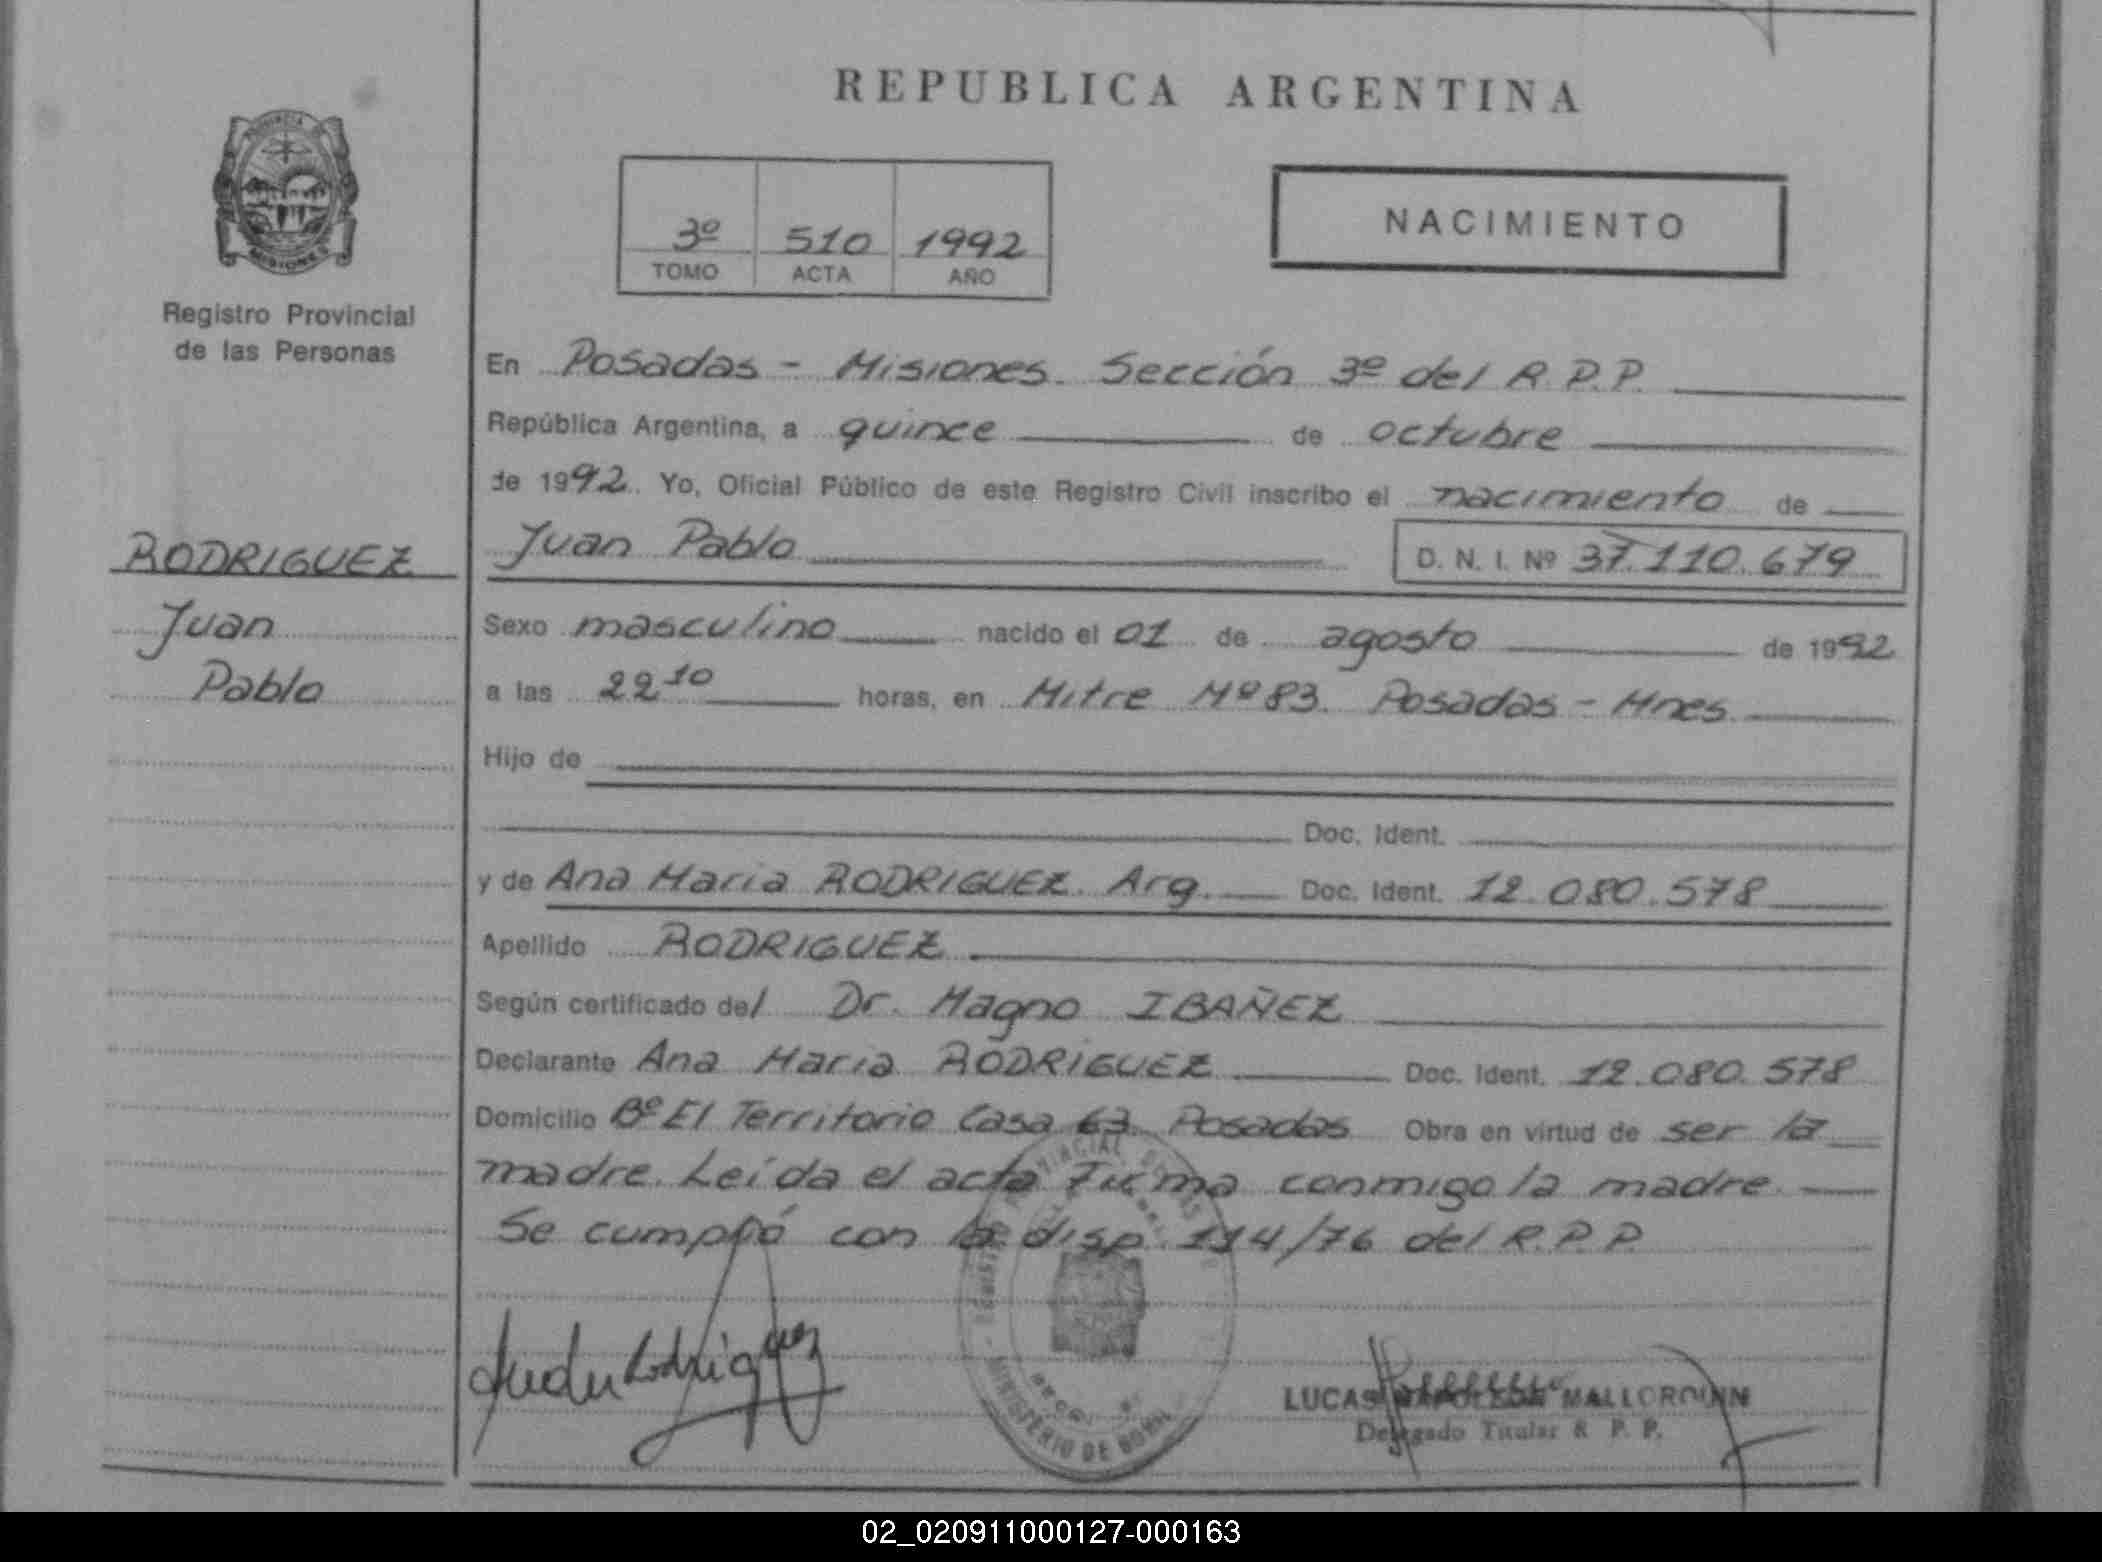 REPUBLICA ARGENTINA
PROVINCIA
MISIONES
Registro Provincial
de las Personas
3º 510 1992
TOMO ACTA AÑO
NACIMIENTO
En Posadas - Misiones. Sección 3º del R.P.P.
República Argentina, a quince de octubre
de 1992. Yo, Oficial Público de este Registro Civil inscribo el nacimiento de
Juan Pablo D. N. I. Nº 37.110.679
RODRIGUEZ
Juan
Pablo
Sexo masculino nacido el 01 de agosto de 1992
a las 22 10 horas, en Mitre Nº 83. Posadas - Mnes.
Hijo de
Doc. Ident.
y de Ana Maria RODRIGUEZ. Arg. Doc. Ident. 12.080.578
Apellido RODRIGUEZ
Según certificado del Dr. Magno IBAÑEZ
Declarante Ana Maria RODRIGUEZ Doc. Ident. 12.080.578
Domicilio Bº El Territorio Casa 63. Posadas Obra en virtud de ser la
madre. Leída el acta Firma conmigo la madre.
Se cumplió con la disp. 114/76 del R.P.P.
Rodriguez
MINISTERIO DE
LUCAS
Delegado Titular R. P. P.
02_020911000127-000163